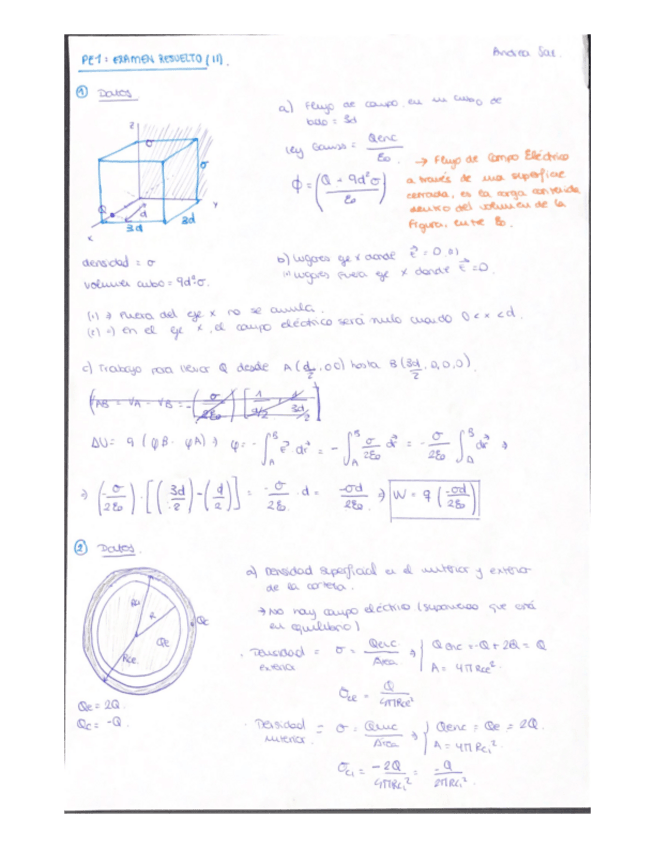 PE1: EXAMEN RESUELTO (II).
Andrea Sae.
① Datos
a) Flujo de campo en un cubo de
lado = 3d
Ley Gauss = Qenc / ε₀
→ Flujo de Campo Eléctrico
a través de una superficie
cerrada, es la carga contenida
dentro del volumen de la
Figura, entre ε₀.
ϕ = (Q + 9d²σ / ε₀)
z
σ
σ
Q
d
y
x
3d
3d
densidad = σ
volumen cubo = 9d²σ.
b) lugares eje x donde E⃗ = 0
lugares fuera eje x donde E⃗ = 0.
(1) → Fuera del eje x no se anula.
(2) → en el eje x, el campo eléctrico será nulo cuando 0 < x < d.
c) Trabajo para llevar Q desde A (d/2, 0,0) hasta B (3d/2, 0,0,0).
ΔU = q (φB - φA) → φ = - ∫_A^B E⃗ dr⃗ = - ∫_A^B σ/2ε₀ dr⃗ = - σ/2ε₀ ∫_A^B dr⃗ →
→ (-σ/2ε₀) · [(3d/2) - (d/2)] = -σ/2ε₀ · d = -σd/2ε₀ → W = q (-σd/2ε₀)
② Datos.
a) Densidad superficial en el interior y exterior
de la corteza.
→ No hay campo eléctrico (suponemos que está
en equilibrio)
R
Qe
Qc
Rce
Qe = 2Q.
Qc = -Q
· Densidad exterior = σ = Qenc / Area → { Qenc = -Q + 2Q = Q
A = 4πRce².
σce = Q / 4πRce²
· Densidad interior = σ = Qenc / Area → { Qenc = Qe = 2Q.
A = 4πRci².
σci = -2Q / 4πRci² = -Q / 2πRci²